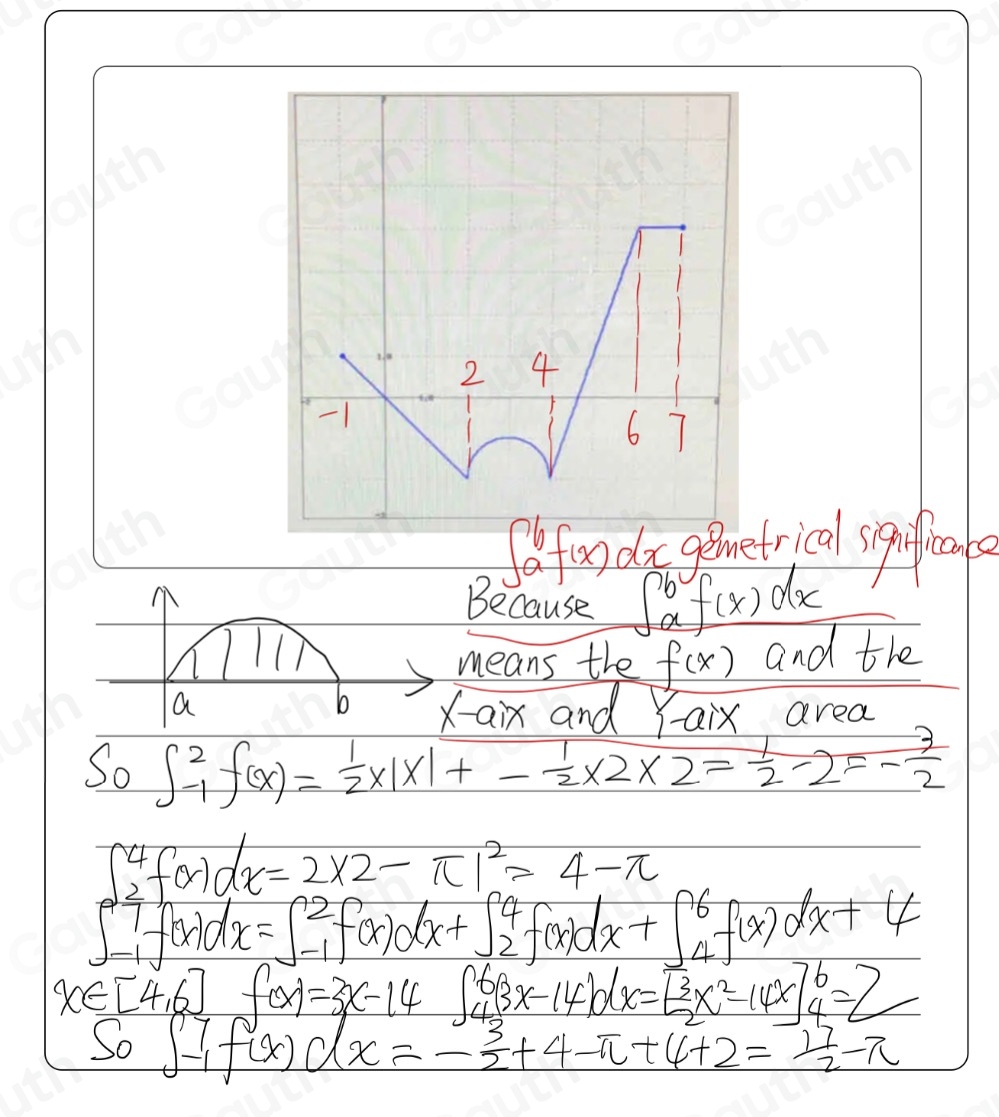 1.0
1.0
2 4
-1 6 7
∫_a^b f(x) dx gemetrical significance
Because ∫_a^b f(x) dx
means the f(x) and the
X-aix and Y-aix area
a b
So ∫_{-1}^2 f(x) = 1/2 x|x| + - 1/2 x 2 x 2 = 1/2 - 2 = - 3/2
∫_2^4 f(x) dx = 2 x 2 - π1² = 4 - π
∫_{-1}^7 f(x) dx = ∫_{-1}^2 f(x) dx + ∫_2^4 f(x) dx + ∫_4^6 f(x) dx + 4
x∈[4,6] f(x) = 3x-14 ∫_4^6 (3x-14) dx = [3/2 x² - 14x]_4^6 = 2
So ∫_{-1}^7 f(x) dx = - 3/2 + 4 - π + 4 + 2 = 17/2 - π
Gauth